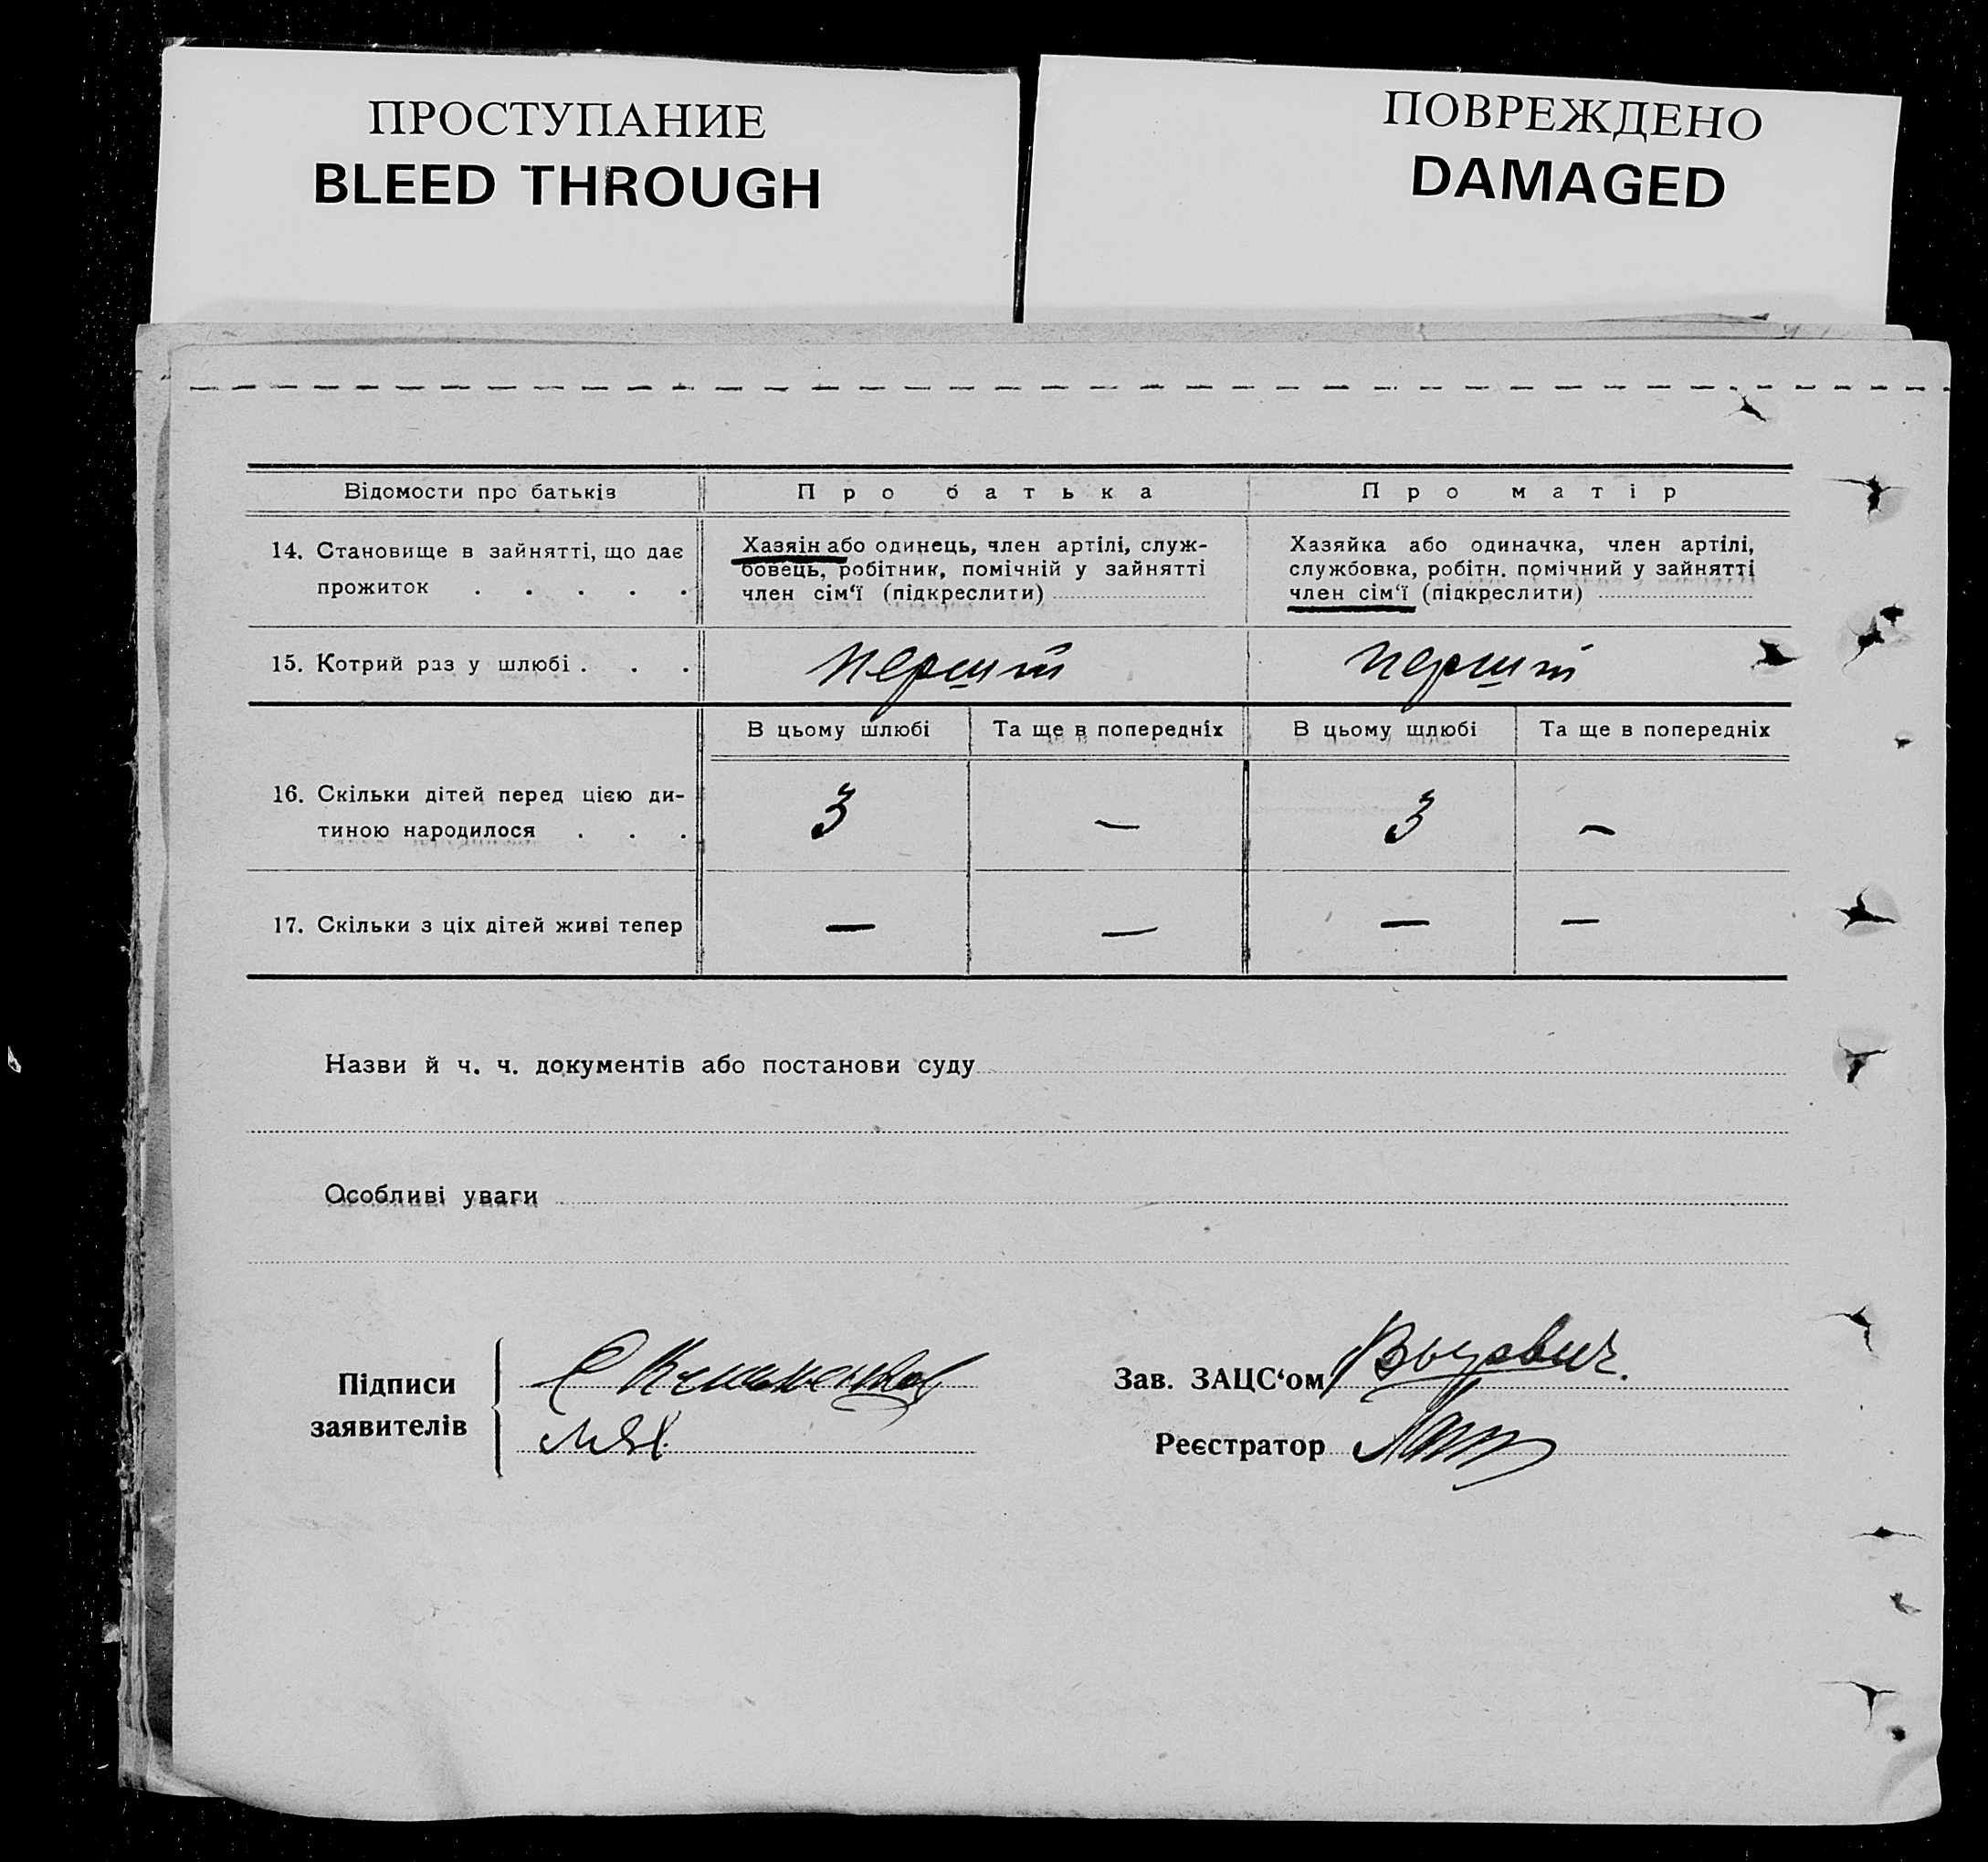 ПРОСТУПАНИЕ
BLEED THROUGH
ПОВРЕЖДЕНО
DAMAGED
Відомости про батьків
Про батька
Про матір
14. Становище в зайнятті, що дає
прожиток . . . . .
Хазяін або одинець, член артілі, служ-
бовець, робітник, помічній у зайнятті
член сім‘ї (підкреслити)
Хазяйка або одиначка, член артілі,
службовка, робітн. помічний у зайнятті
член сім‘ї (підкреслити)
15. Котрий раз у шлюбі . . .
перший
перший
В цьому шлюбі
Та ще в попередніх
В цьому шлюбі
Та ще в попередніх
16. Скільки дітей перед цією ди-
тиною народилося . . .
3
—
3
—
17. Скільки з ціх дітей живі тепер
—
—
—
—
Назви й ч. ч. документів або постанови суду
Особливі уваги
Підписи
заявителів
Зав. ЗАЦС‘ом
Реєстратор